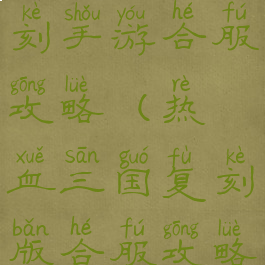 kè shǒu yóu hé fú
刻手游合服
gōng lüè rè
攻略（热
xuè sān guó fù kè
血三国复刻
bǎn hé fú gōng lüè
版合服攻略